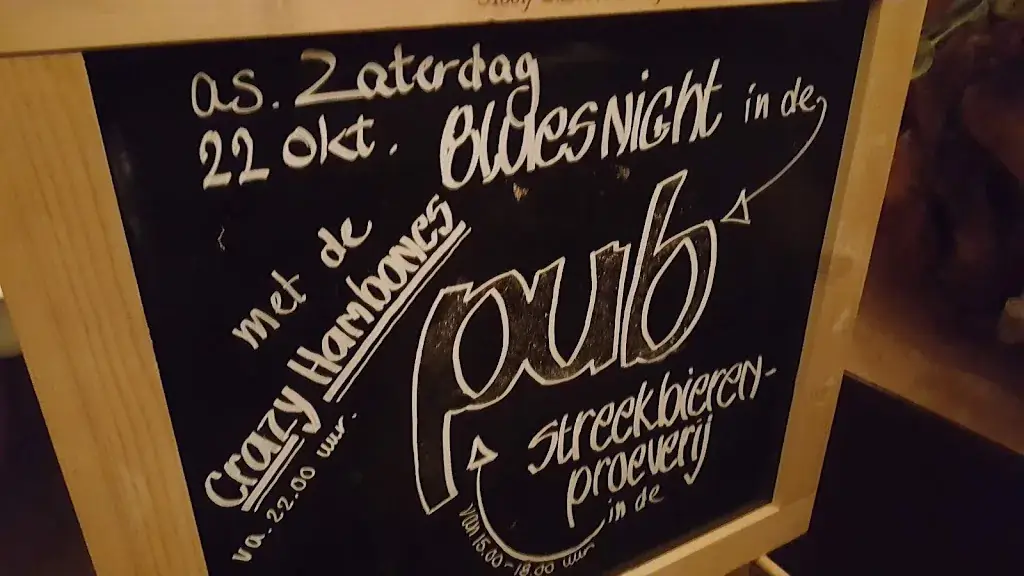 as. Zaterdag
22 okt. BluesNight in de
pub
met de
Crazy Hambones
va. 22.00 uur.
streekbieren-
proeverij
in de
van 15.00-18.00 uur